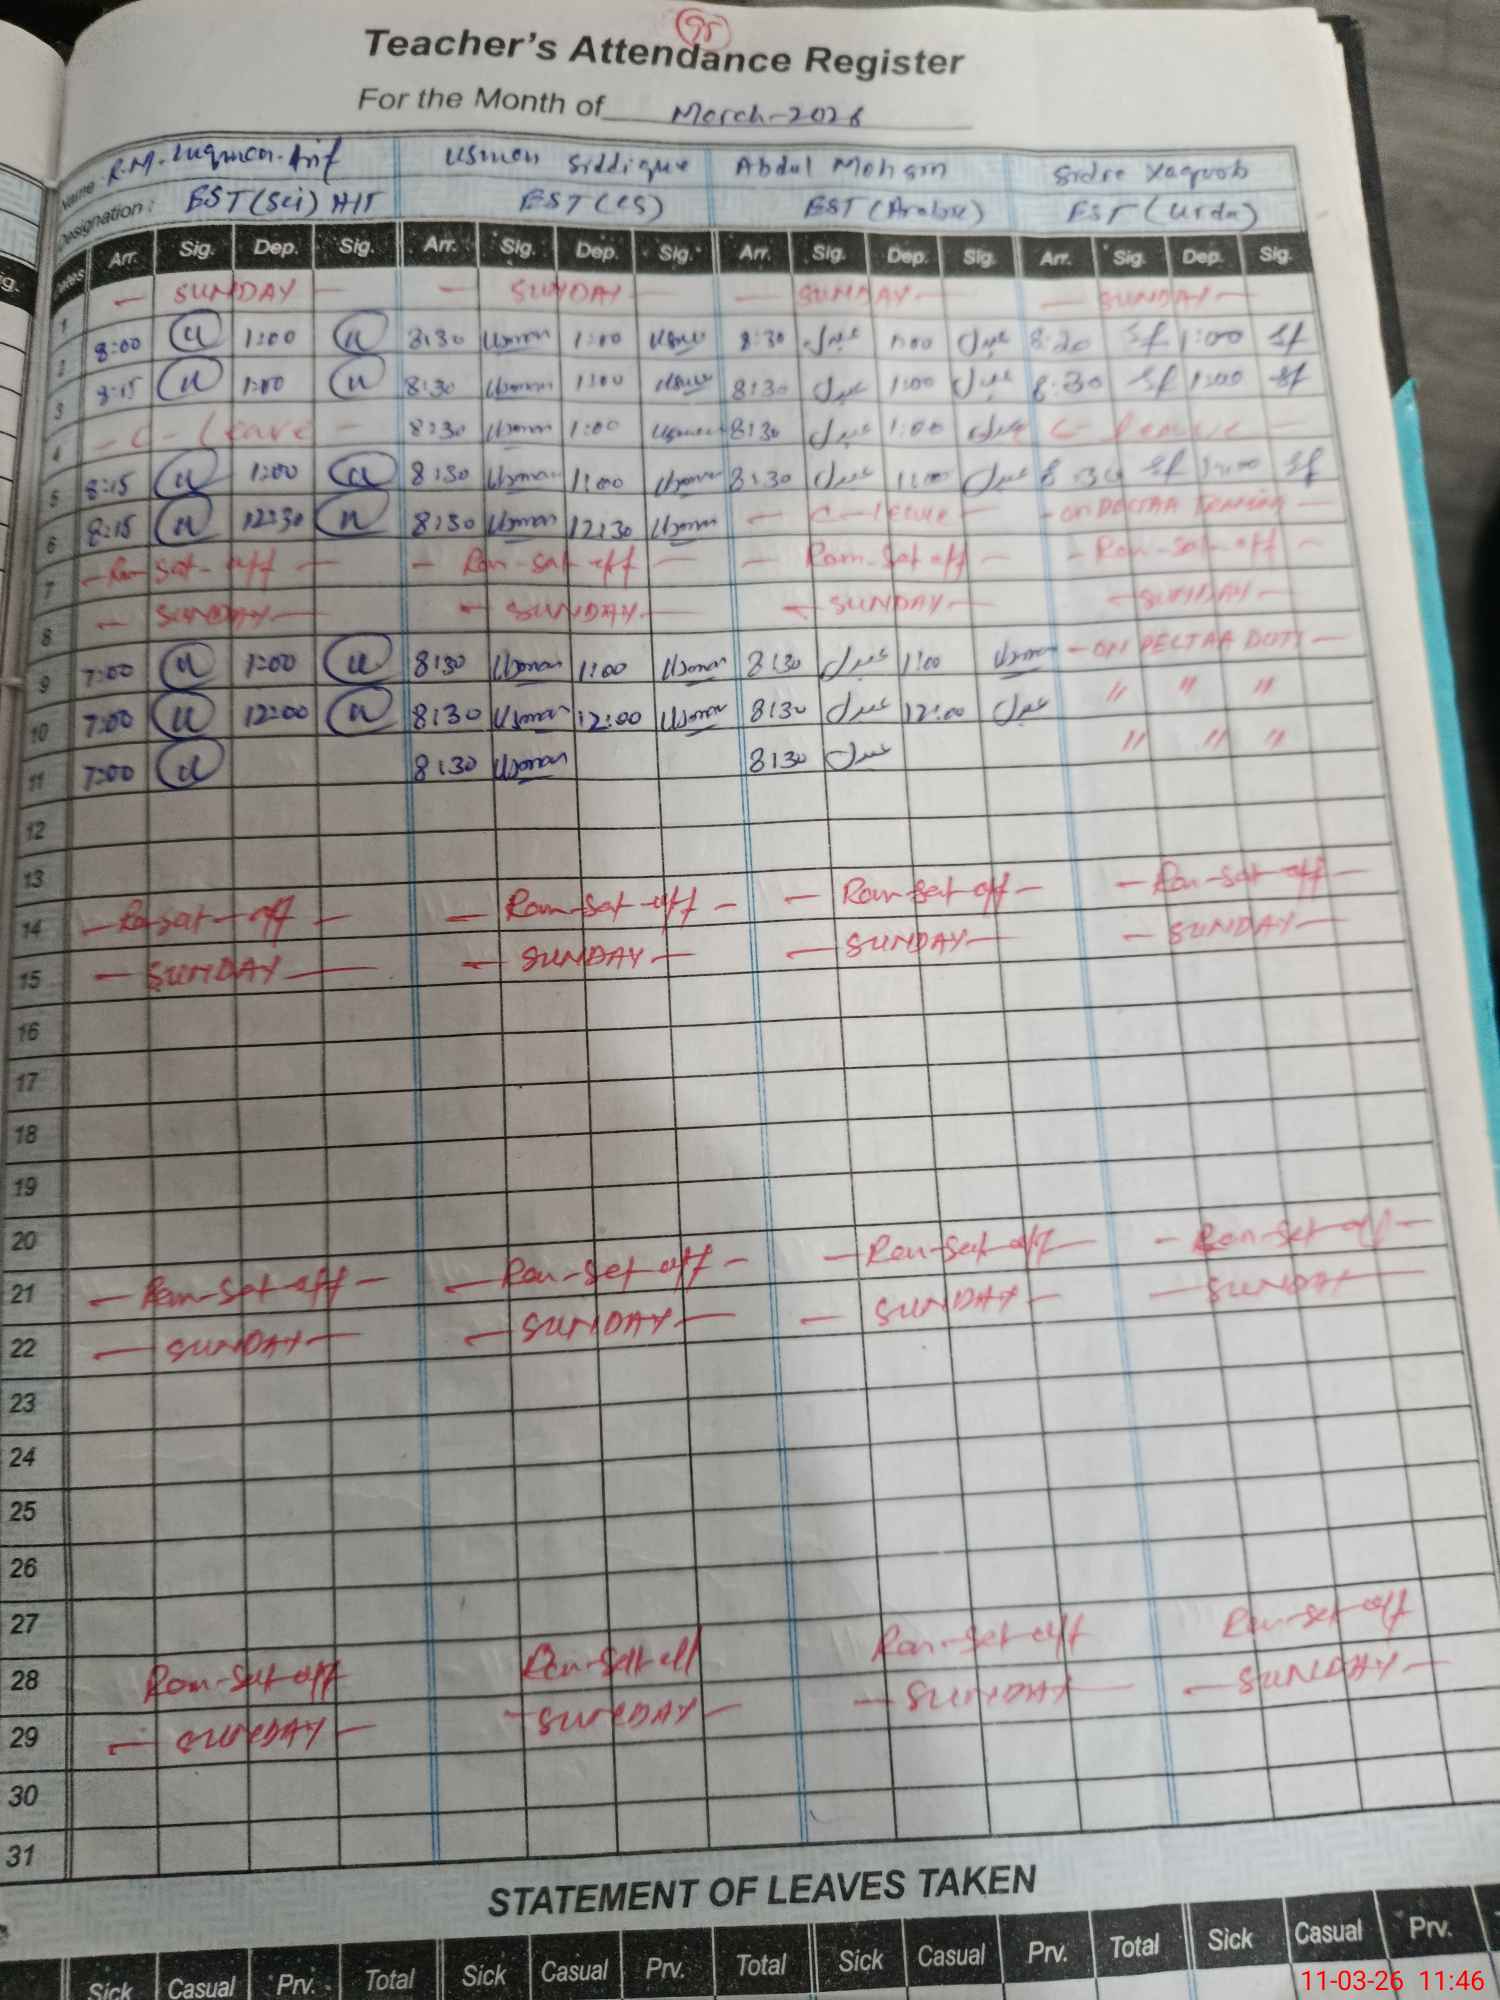 95
Teacher's Attendance Register
For the Month of March-2026
Name R.M. Luqman Arif Usman Siddique Abdul Mohsin Sidra Yaqoob
Designation: EST(Sci) H/T EST(CS) EST(Arabic) EST(Urdu)
Dates Arr. Sig. Dep. Sig. Arr. Sig. Dep. Sig. Arr. Sig. Dep. Sig. Arr. Sig. Dep. Sig.
1 — SUNDAY — — SUNDAY — — SUNDAY — — SUNDAY —
2 8:00 1:00 8:30 Usman 1:00 Usman 8:30 1:00 8:30 Sf 1:00 Sf
3 8:15 1:00 8:30 Usman 1:00 Usman 8:30 1:00 8:30 Sf 1:00 Sf
4 — C-Leave — 8:30 Usman 1:00 Usman 8:30 1:00 C-Leave —
5 8:15 1:00 8:30 Usman 1:00 Usman 8:30 1:00 8:30 Sf 1:00 Sf
6 8:15 12:30 8:30 Usman 12:30 Usman — C-leave — - ON PECTAA Training —
7 — Ram-Sat-off — — Ram-Sat-off — — Ram-Sat-off — — Ram-Sat-off —
8 — SUNDAY — — SUNDAY — — SUNDAY — — SUNDAY —
9 7:00 1:00 8:30 Usman 1:00 Usman 8:30 1:00 Usman — ON PECTAA DUTY —
10 7:00 12:00 8:30 Usman 12:00 Usman 8:30 12:00 " " "
11 7:00 8:30 Usman 8:30 " " "
12
13
14 — Ram-Sat-off — — Ram-Sat-off — — Ram-Sat-off — — Ram-Sat-off —
15 — SUNDAY — — SUNDAY — — SUNDAY — — SUNDAY —
16
17
18
19
20
21 — Ram-Sat-off — — Ram-Sat-off — — Ram-Sat-off — — Ram-Sat-off —
22 — SUNDAY — — SUNDAY — — SUNDAY — — SUNDAY —
23
24
25
26
27
28 Ram-Sat-off Ram-Sat-off Ram-Sat-off Ram-Sat-off
29 — SUNDAY — — SUNDAY — — SUNDAY — — SUNDAY —
30
31
STATEMENT OF LEAVES TAKEN
Sick Casual Prv. Total Sick Casual Prv. Total Sick Casual Prv. Total Sick Casual Prv.
11-03-26 11:46